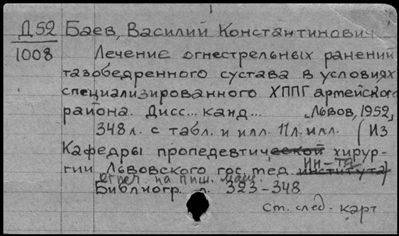 Д52 Баев, Василий Константинович
1008 Лечение огнестрельных ранений
тазобедренного сустава в условиях
специализированного ХППГ армейского
района. Дисс... канд... Львов, 1952,
348 л. с табл. и илл. 11 л. илл. (Из
Кафедры пропедевтической хирур-
гии Львовского гос. мед. ин-та)
Отпеч. на пиш. маш.
Библиогр. л. 323-348
См. след. карт